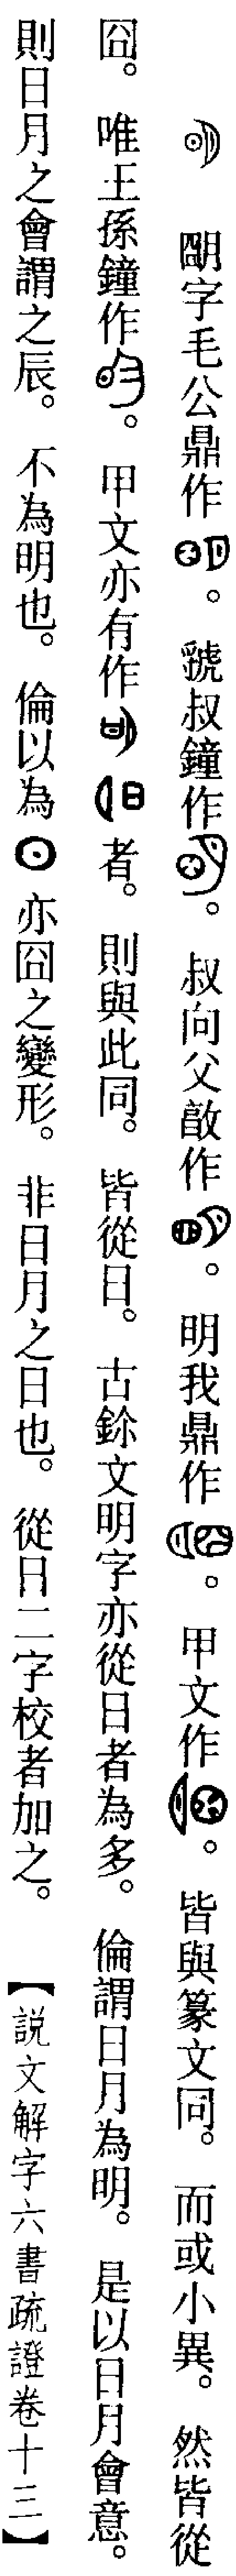 朙字毛公鼎作。虢叔鐘作。叔向父𣪘作。明我鼎作。甲文作。皆與篆文同。而或小異。然皆從
囧。唯王孫鐘作。甲文亦有作者。則與此同。皆從日。古鉩文明字亦從日者為多。倫謂日月為明。是以日月會意。
則日月之會謂之辰。不為明也。倫以為⊙亦囧之變形。非日月之日也。從日二字校者加之。【說文解字六書疏證卷十三】